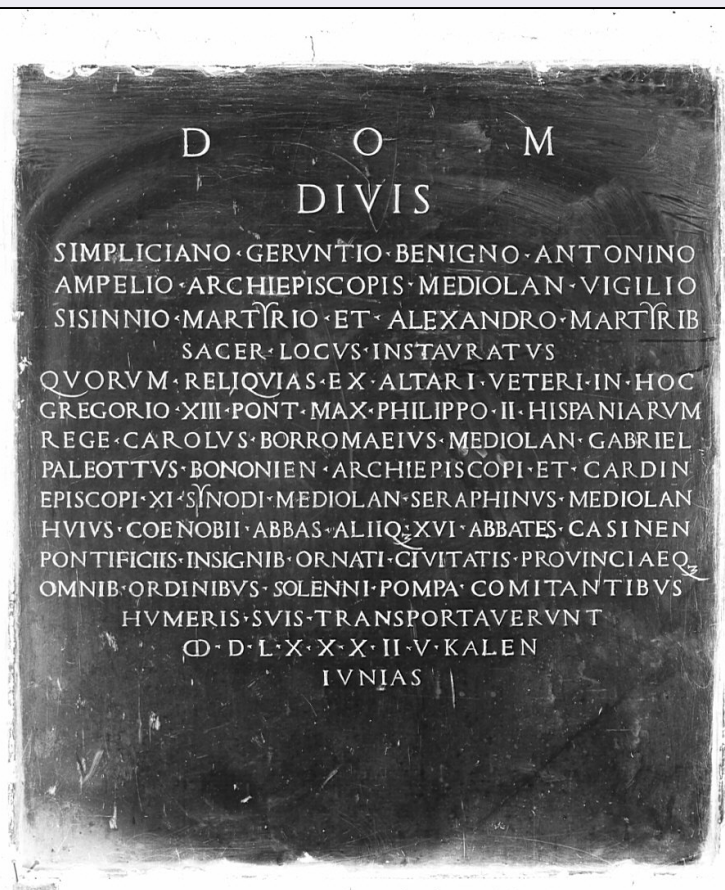 D O M
DIVIS
SIMPLICIANO·GERVNTIO·BENIGNO·ANTONINO
AMPELIO·ARCHIEPISCOPIS·MEDIOLAN·VIGILIO
SISINNIO·MARTYRIO·ET·ALEXANDRO·MARTYRIB
SACER·LOCVS·INSTAVRATVS
QVORVM·RELIQVIAS·EX·ALTARI·VETERI·IN·HOC
GREGORIO·XIII·PONT·MAX·PHILIPPO·II·HISPANIARVM
REGE·CAROLVS·BORROMAEIVS·MEDIOLAN·GABRIEL
PALEOTTVS·BONONIEN·ARCHIEPISCOPI·ET·CARDIN
EPISCOPI·XI·SYNODI·MEDIOLAN·SERAPHINVS·MEDIOLAN
HVIVS·COENOBII·ABBAS·ALIIQꝫ·XVI·ABBATES·CASINEN
PONTIFICIIS·INSIGNIB·ORNATI·CIVITATIS·PROVINCIAEQꝫ
OMNIB·ORDINIBVS·SOLENNI·POMPA·COMITANTIBVS
HVMERIS·SVIS·TRANSPORTAVERVNT
ↀ·D·L·X·X·X·II·V·KALEN
IVNIAS